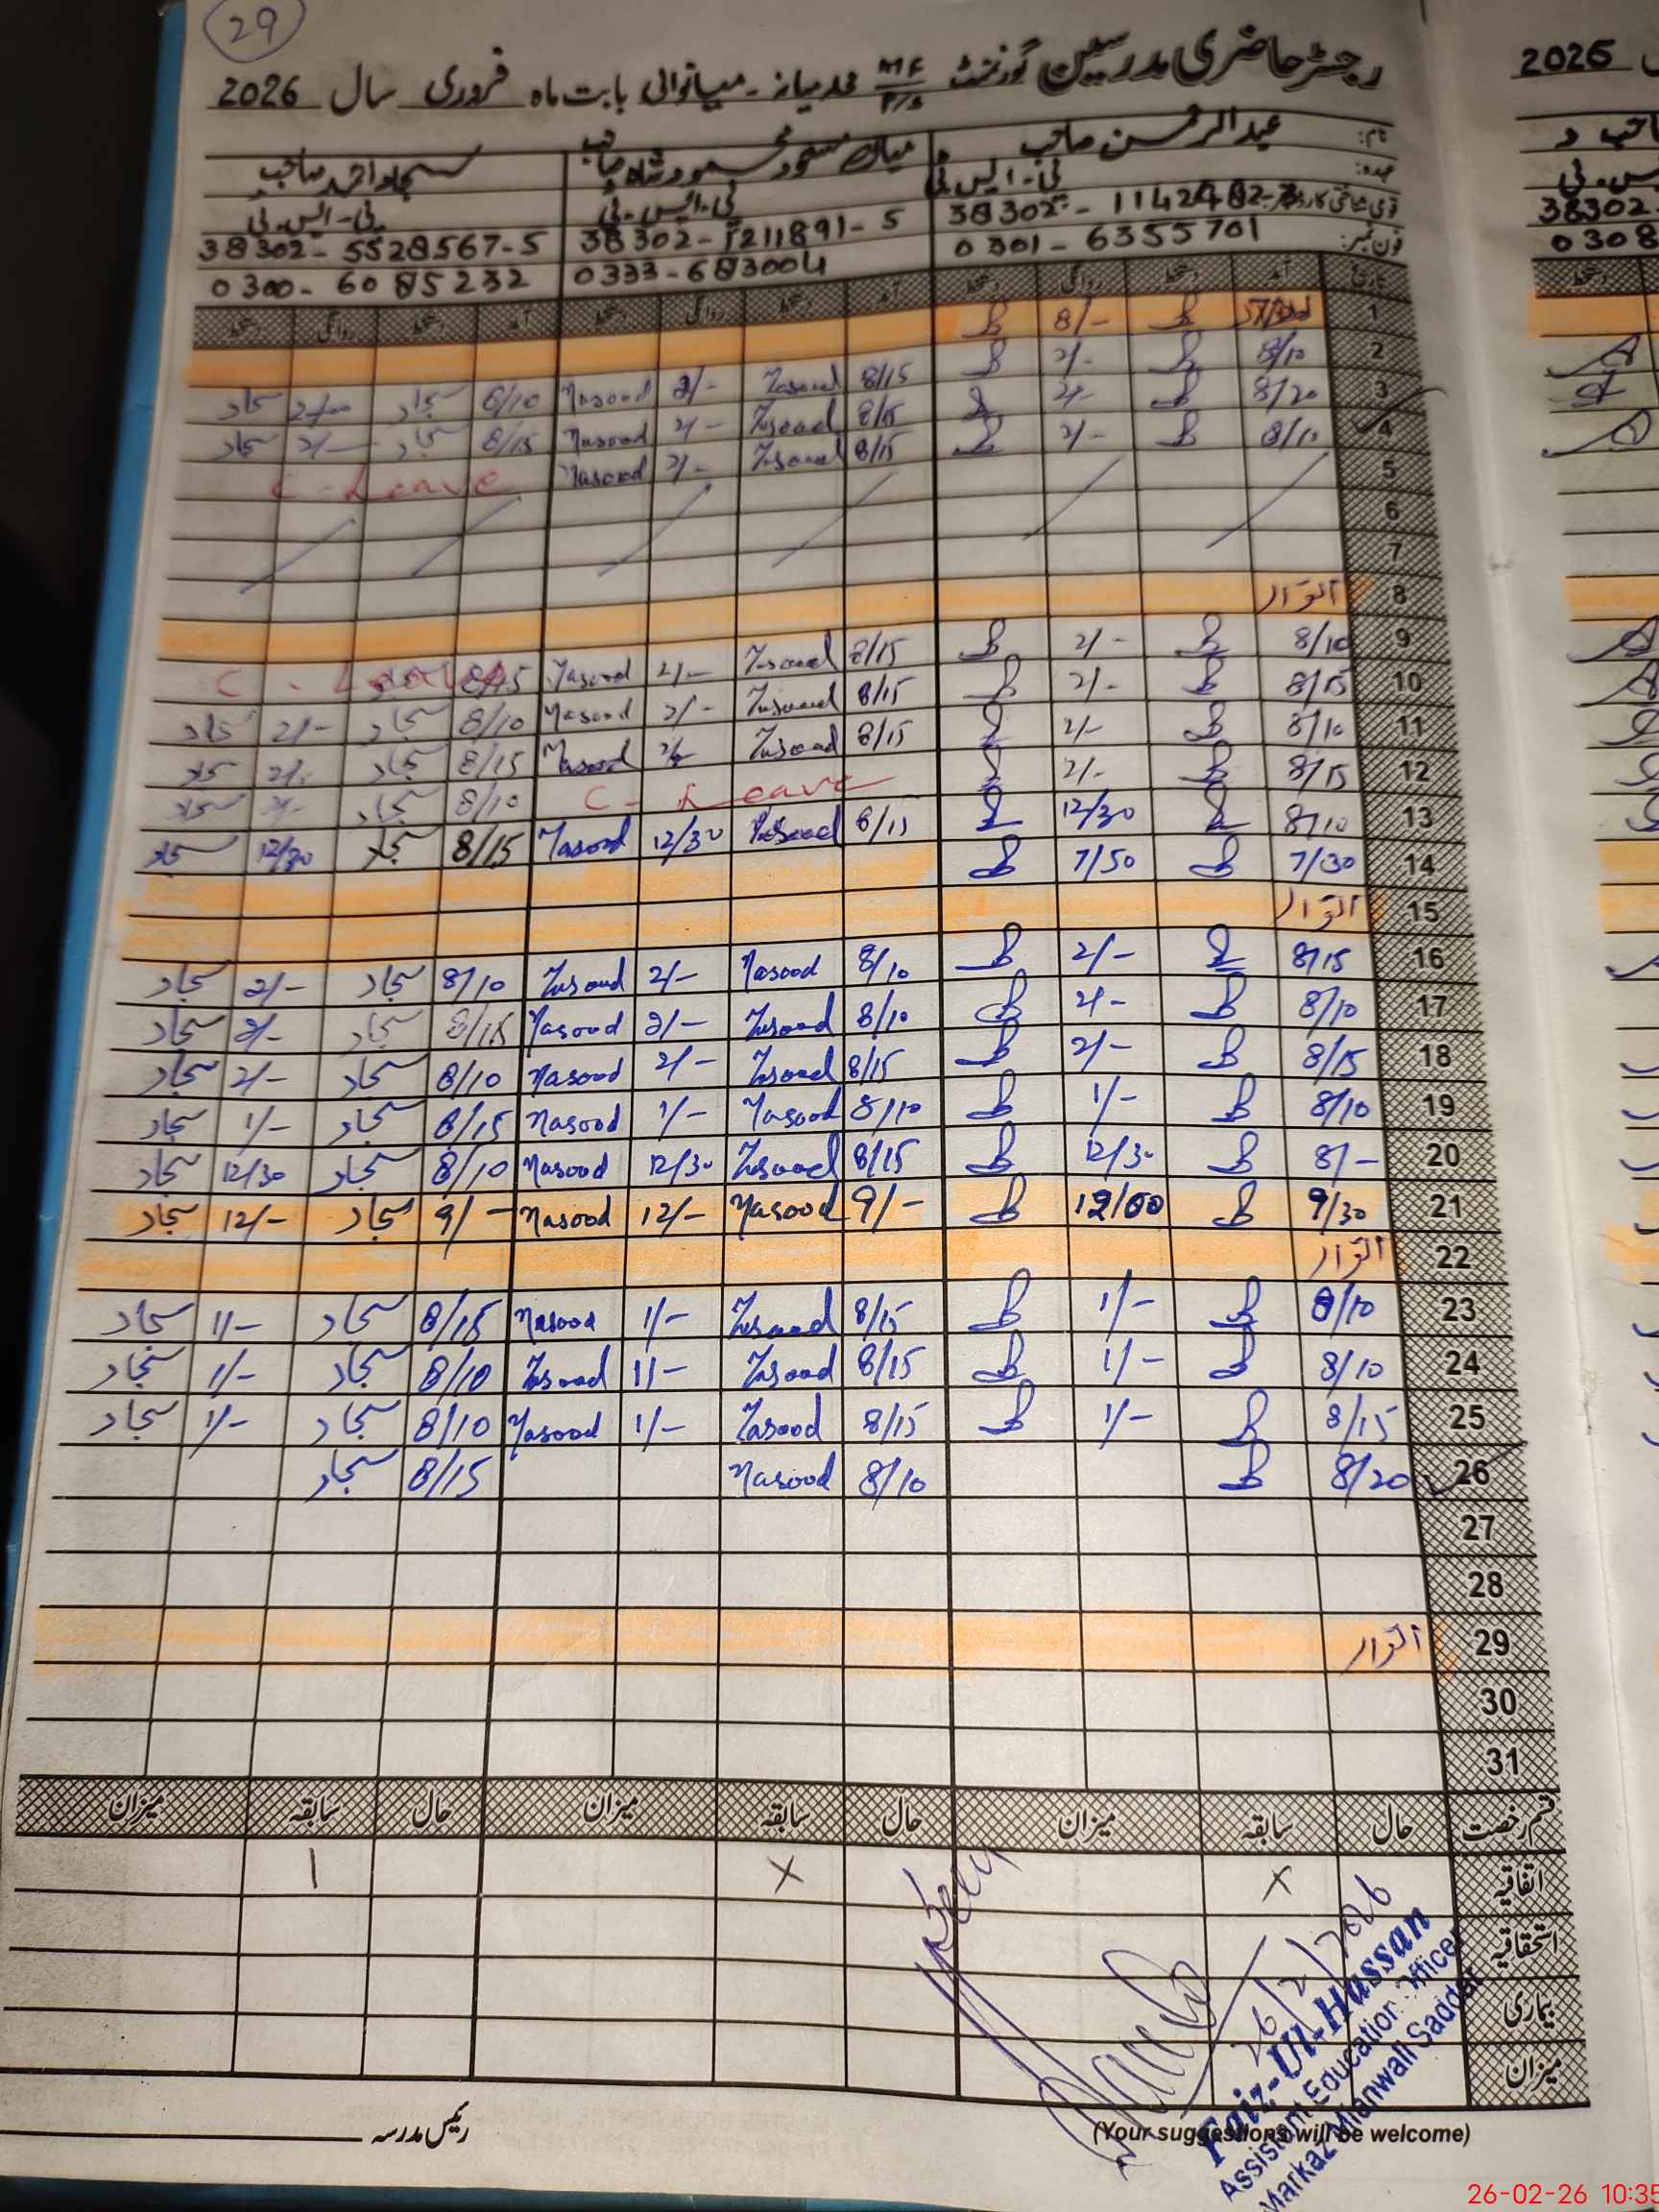 29
رجسٹر حاضری مدرسین گورنمنٹ MC P/S محلہ میانہ ۔ میانوالی بابت ماہ فروری سال 2026
نام: عبدالرحمٰن صاحب میاں مسعود محمود شاہ صاحب سجاد احمد صاحب
عہدہ: پی۔ایس۔ٹی پی۔ایس۔ٹی پی۔ایس۔ٹی
قومی شناختی کارڈ نمبر 38302-5528567-5
فون نمبر: 0301-6355701 0333-683004 0300-6085232
تاریخ آمد دستخط روانگی دستخط آمد دستخط روانگی دستخط آمد دستخط روانگی دستخط
1 8/-
2 8/10 2/- 8/15 Masood 2/- Masood 8/10 سجاد 2/00 سجاد
3 8/20 2/- 8/15 Masood 2/- Masood 8/15 سجاد 2/- سجاد
4 8/10 2/- 8/15 Masood 2/- Masood C-Leave
5
6
7
8 اتوار
9 8/10 2/- 8/15 Masood 2/- Masood 8/15 C-Leave
10 8/15 2/- 8/15 Masood 2/- Masood 8/10 سجاد 2/- سجاد
11 8/10 2/- 8/15 Masood 2/- Masood 8/15 سجاد 2/- سجاد
12 8/15 2/- C-Leave 8/10 سجاد 2/- سجاد
13 8/10 12/30 8/15 Masood 12/30 Masood 8/15 سجاد 12/30 سجاد
14 7/30 7/50
15 اتوار
16 8/15 2/- 8/10 Masood 2/- Masood 8/10 سجاد 2/- سجاد
17 8/10 2/- 8/10 Masood 2/- Masood 8/15 سجاد 2/- سجاد
18 8/15 2/- 8/15 Masood 2/- Masood 8/10 سجاد 2/- سجاد
19 8/10 1/- 8/10 Masood 1/- Masood 8/15 سجاد 1/- سجاد
20 8/- 12/30 8/15 Masood 12/30 Masood 8/10 سجاد 12/30 سجاد
21 9/30 12/00 9/- Masood 12/- Masood 9/- سجاد 12/- سجاد
22 اتوار
23 8/10 1/- 8/15 Masood 1/- Masood 8/15 سجاد 1/- سجاد
24 8/10 1/- 8/15 Masood 1/- Masood 8/10 سجاد 1/- سجاد
25 8/15 1/- 8/15 Masood 1/- Masood 8/10 سجاد 1/- سجاد
26 8/20 8/10 Masood 8/15 سجاد
27
28
29 اتوار
30
31
قسم رخصت حال سابقہ میزان حال سابقہ میزان حال سابقہ میزان
اتفاقیہ × × 1
استحقاقیہ
بیماری
میزان
26/2/2026
Faiz-Ul-Hassan
Assistant Education Officer
Markaz Mianwali Saddar
(Your suggestions will be welcome)
رئیس مدرسہ
2026
38302
0308
26-02-26 10:35